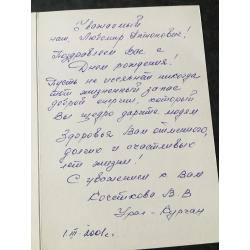 Уважаемый
наш, Любомир Антонович!
Поздравляем Вас с
Днем рождения!
Пусть не иссякнет никогда
этот жизненный запас
доброй энергии, который
Вы щедро дарите людям
Здоровья Вам отличного,
долгих и счастливых
лет жизни!
С уважением к Вам
В.В
Урал - Курган
1 III - 2001 г.